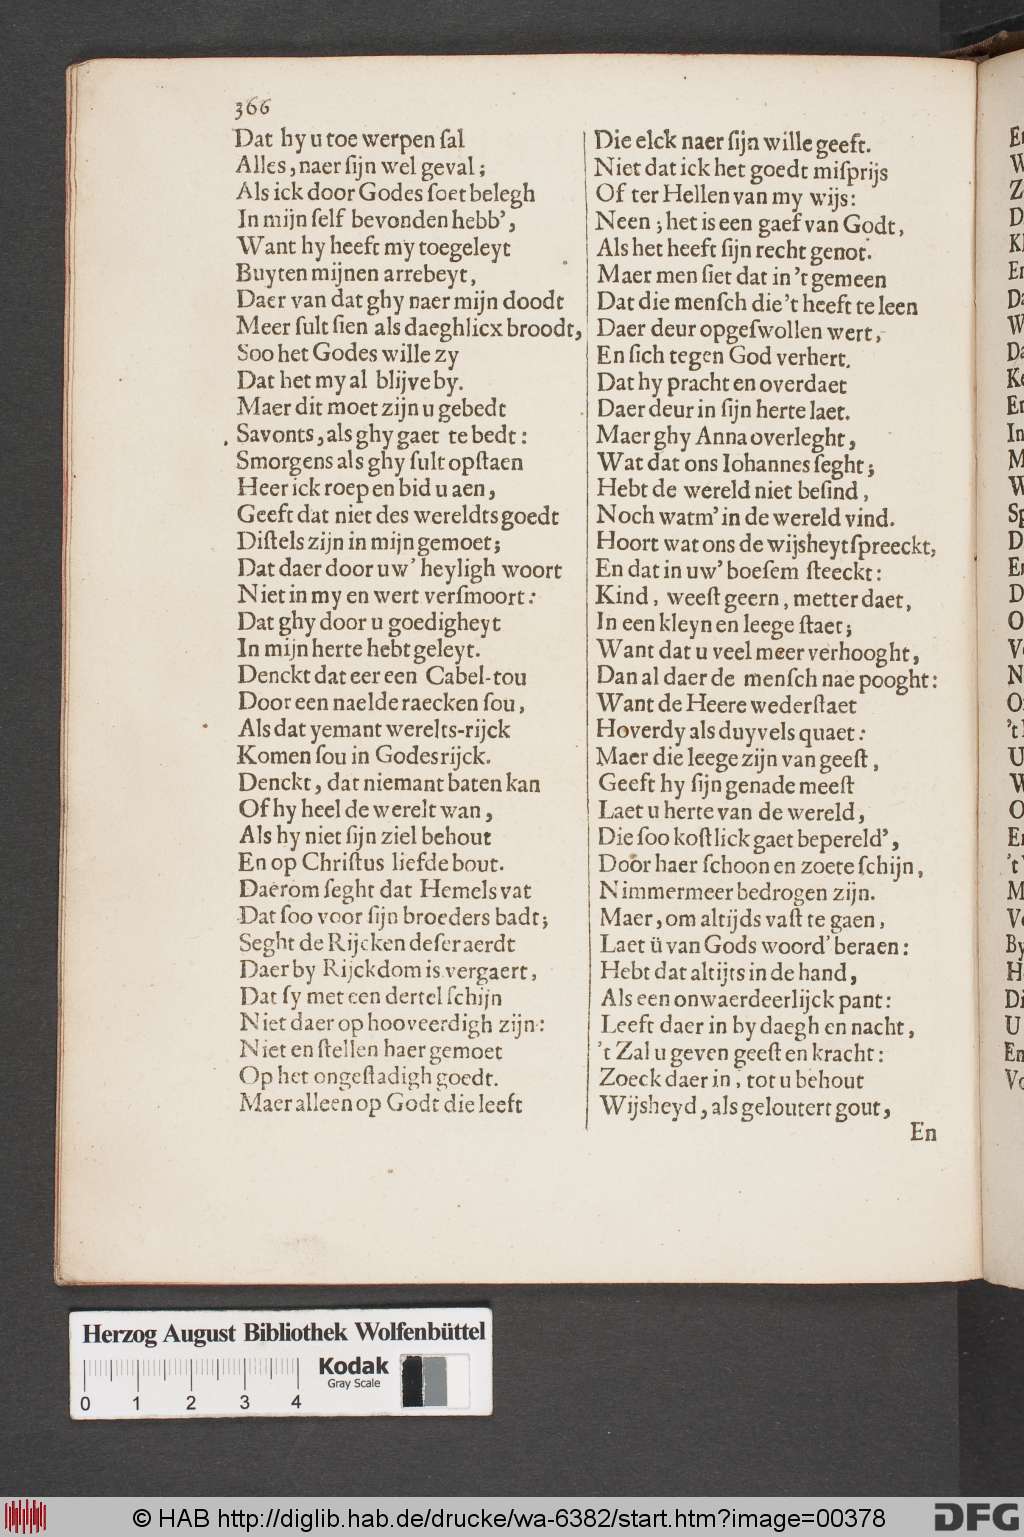 366
Dat hy u toe werpen ſal
Alles, naer ſijn wel geval;
Als ick door Godes ſoet belegh
In mijn ſelf bevonden hebb',
Want hy heeft my toegeleyt
Buyten mijnen arrebeyt,
Daer van dat ghy naer mijn doodt
Meer ſult ſien als daeghlicx broodt,
Soo het Godes wille zy
Dat het my al blijve by.
Maer dit moet zijn u gebedt
Savonts, als ghy gaet te bedt:
Smorgens als ghy ſult opſtaen
Heer ick roep en bid u aen,
Geeft dat niet des wereldts goedt
Diſtels zijn in mijn gemoet;
Dat daer door uw' heyligh woort
Niet in my en wert verſmoort:
Dat ghy door u goedigheyt
In mijn herte hebt geleyt.
Denckt dat eer een Cabel-tou
Door een naelde raecken ſou,
Als dat yemant werelts-rijck
Komen ſou in Godes rijck.
Denckt, dat niemant baten kan
Of hy heel de werelt wan,
Als hy niet ſijn ziel behout
En op Chriſtus liefde bout.
Daerom ſeght dat Hemels vat
Dat ſoo voor ſijn broeders badt;
Seght de Rijcken deſer aerdt
Daer by Rijckdom is vergaert,
Dat ſy met een dertel ſchijn
Niet daer op hooveerdigh zijn:
Niet en ſtellen haer gemoet
Op het ongeſtadigh goedt.
Maer alleen op Godt die leeft
Die elck naer ſijn wille geeft.
Niet dat ick het goedt miſprijs
Of ter Hellen van my wijs:
Neen; het is een gaef van Godt,
Als het heeft ſijn recht genot.
Maer men ſiet dat in 't gemeen
Dat die menſch die 't heeft te leen
Daer deur opgeſwollen wert,
En ſich tegen God verhert.
Dat hy pracht en overdaet
Daer deur in ſijn herte laet.
Maer ghy Anna overleght,
Wat dat ons Iohannes ſeght;
Hebt de wereld niet beſind,
Noch watm' in de wereld vind.
Hoort wat ons de wijsheyt ſpreeckt,
En dat in uw' boeſem ſteeckt:
Kind, weeſt geern, metter daet,
In een kleyn en leege ſtaet;
Want dat u veel meer verhooght,
Dan al daer de menſch nae pooght:
Want de Heere wederſtaet
Hoverdy als duyvels quaet:
Maer die leege zijn van geeſt,
Geeft hy ſijn genade meeſt
Laet u herte van de wereld,
Die ſoo koſtlick gaet bepereld',
Door haer ſchoon en zoete ſchijn,
Nimmermeer bedrogen zijn.
Maer, om altijds vaſt te gaen,
Laet ü van Gods woord' beraen:
Hebt dat altijts in de hand,
Als een onwaerdeerlijck pant:
Leeft daer in by daegh en nacht,
't Zal u geven geeſt en kracht:
Zoeck daer in, tot u behout
Wijsheyd, als geloutert gout,
En
Herzog August Bibliothek Wolfenbüttel
0 1 2 3 4
Kodak
Gray Scale
© HAB http://diglib.hab.de/drucke/wa-6382/start.htm?image=00378
DFG